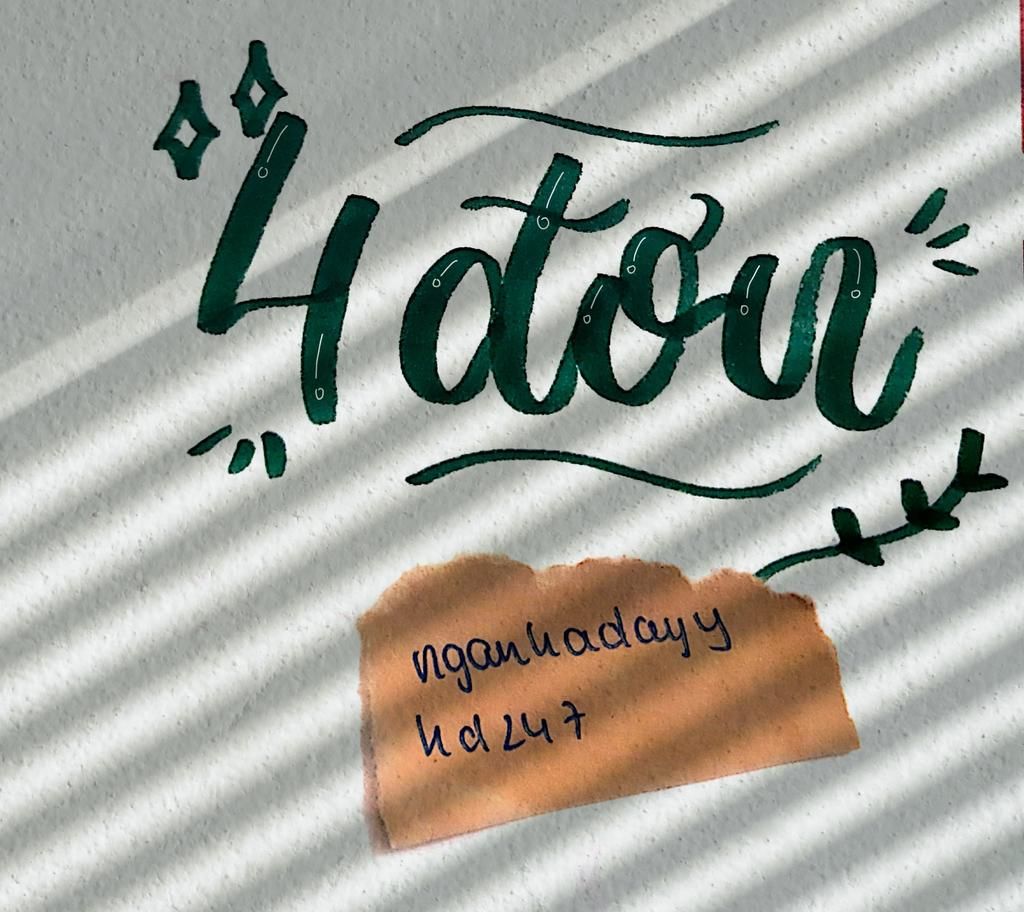 4 đơn
nganhadayy
hd247